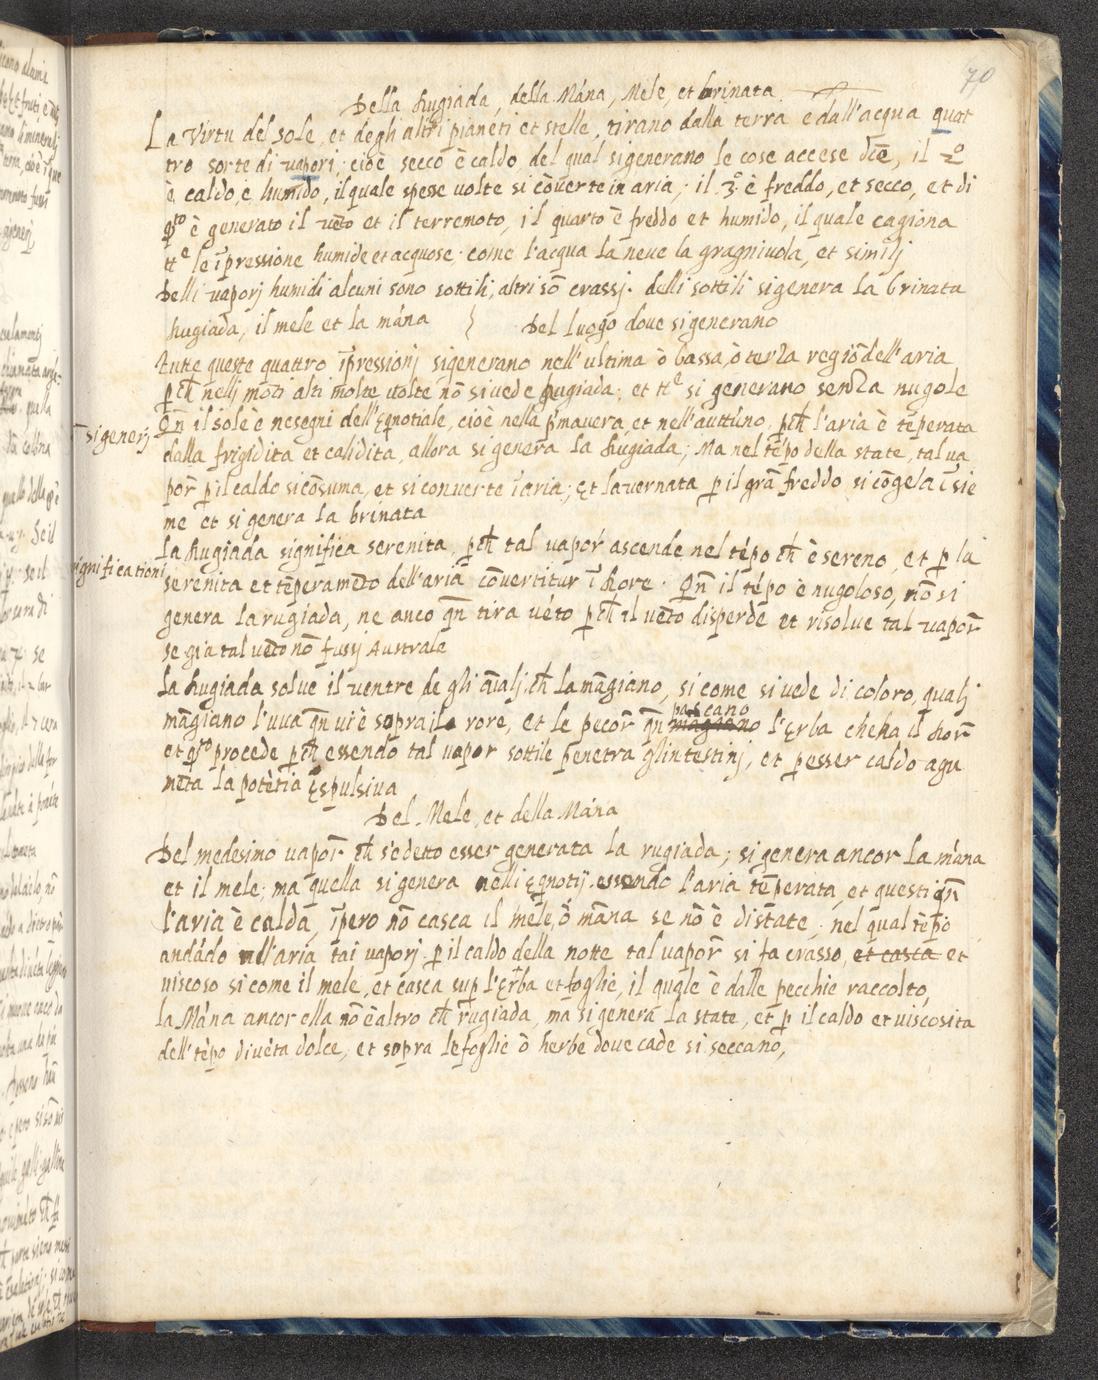 70
Della hugiada, della Māna, Mele, et brinata
La Virtu del sole, et degli altri pianeti et stelle, tirano dalla terra e dall'acqua quat
tro sorte di vapori. cioè secco è caldo del qual si generano le cose accese dcē, il 2º
è caldo, è humido, il quale spesse volte si cōverte in aria; il 3º è freddo, et secco, et di
qsto è generato il vēto et il terremoto, il quarto è freddo et humido, il quale cagiona
tte le īpressione humide et acquose. come l'acqua la neve la gragnivola, et similj
Delli vaporj humidi alcuni sono sottili, altri sō crassj. delli sottili si genera la brinata
hugiada, il mele et la māna { Del luogo dove si generano
Tutte queste quattro īpressionj si generano nell'ultima ò bassa, ò terza regiō dell'aria
pch̄ nelli mōti alti molte volte nō si vede hugiada; et tte si generano senza nugole
si generj
Qn̄ il sole è ne segni dell'Eqnotiale, cioè nella p̄mavera, et nell'auttūno, pch̄ l'aria è tēperata
dalla frigidita et calidita, allora si genera la hugiada; Ma nel tēpo della state, tal va
por̄ p il caldo si cōsuma, et si converte ī aria; et la vernata p il grā freddo si cōgela īsie
me et si genera la brinata
significationi
La hugiada significa serenita, pch̄ tal vapor ascende nel tēpo ch̄ è sereno, et p la
serenita et tēperamēto dell'aria cōvertitur ī hore. Qn̄ il tēpo è nugoloso, nō si
genera la rugiada, ne anco qn̄ tira vēto pch̄ il vēto disperde et risolve tal vapor̄
se gia tal vēto nō fussj Australe
La hugiada solve il ventre de gli aīalj. ch̄ la māgiano, si come si vede di coloro, qualj
māgiano l'uva qn̄ vi è sopra il rore, et le pecor̄ qn̄ māgiano pascano l'Erba che ha il hor̄
et qsto procede pch̄ essendo tal vapor sottile penetra gl'intestinj, et p esser caldo agu
mēta la potētia Espulsiva
Del Mele, et della Māna
Del medesimo vapor̄ ch̄ s'è detto esser generata la rugiada; si genera ancor la māna
et il mele; ma quella si genera nelli Eqnotij essendo l'aria tēperata, et questi qn̄
l'aria è calda, īpero nō casca il mele, ò māna se nō è di state, nel qual tēpo
andādo nell'aria tai vaporj. p il caldo della notte tal vapor̄ si fa crasso, et casca et
viscoso si come il mele, et casca sup l'Erba et foglie, il quale è dalle pecchie raccolto,
la Māna ancor ella nō è altro ch̄ rugiada, ma si genera la state, et p il caldo et viscosita
dell'tēpo divēta dolce, et sopra le foglie ò herbe dove cade si seccano,